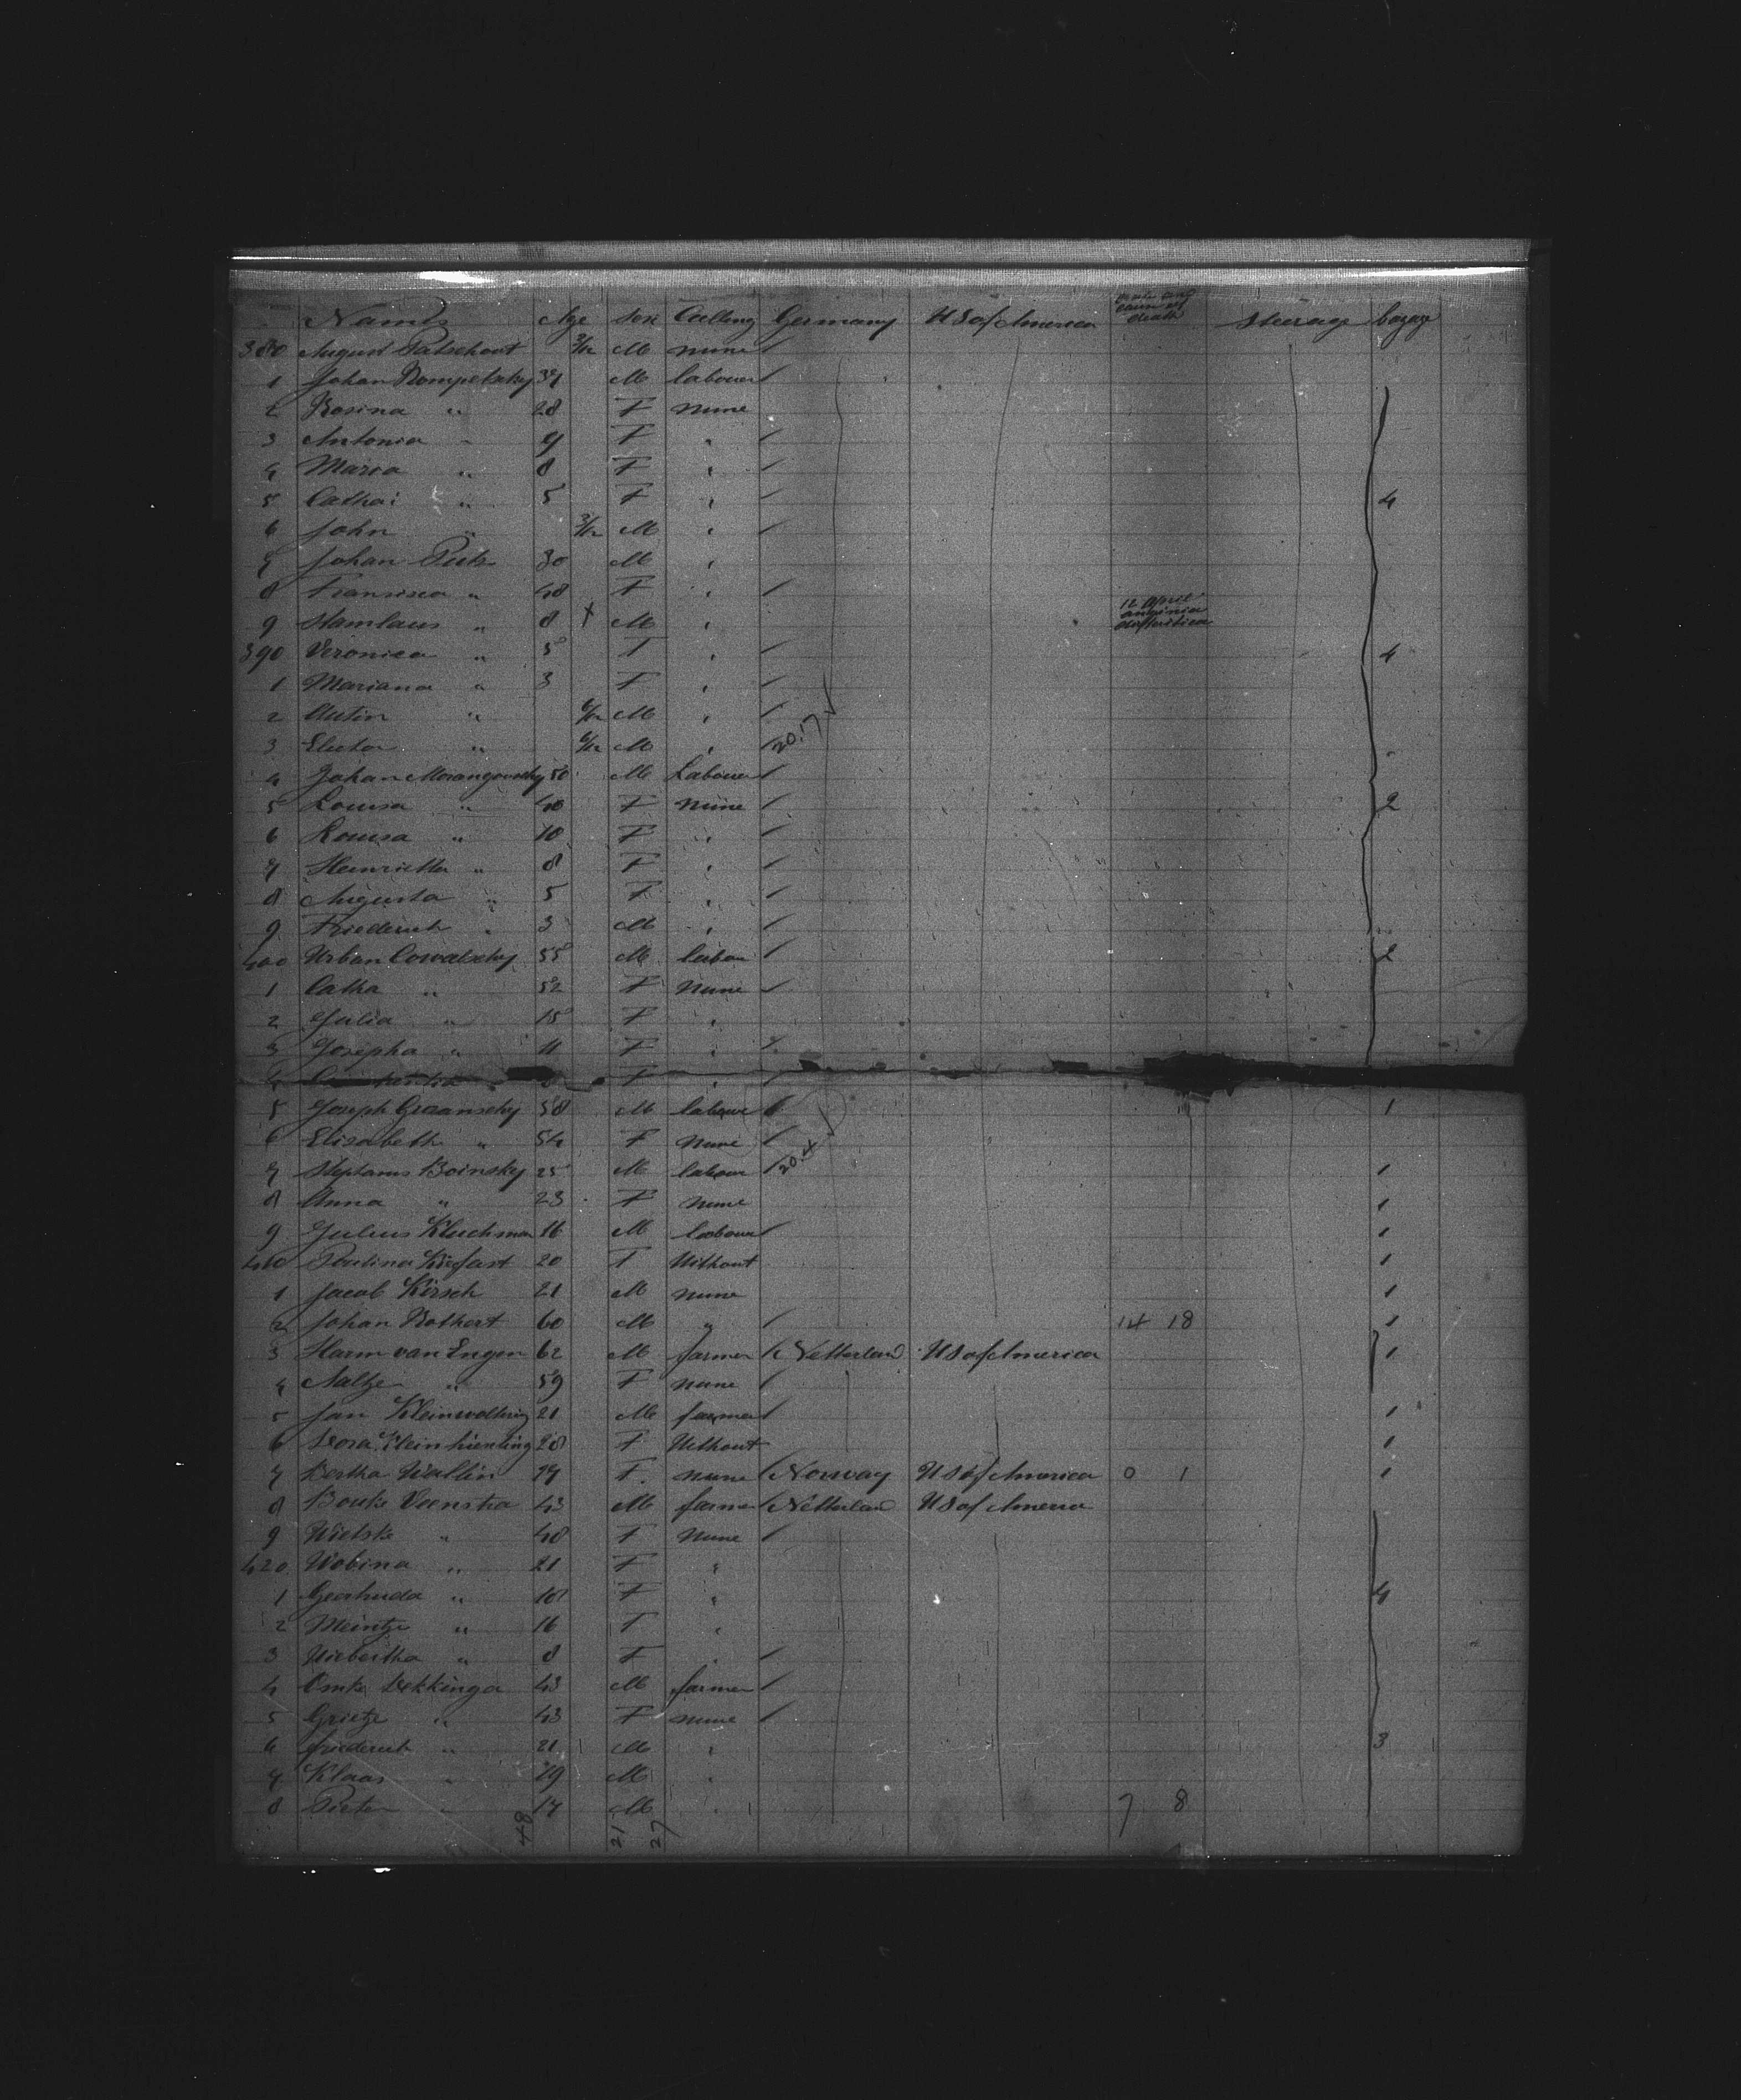 Names Age Sex Calling Germany US of America death Steerage bagage
380 August Patschout 3/12 M none
1 Johan Rompelsky 37 M labouer
2 Rosina " 28 F none
3 Antonia " 9 F "
4 Maria " 8 F "
5 Cathai " 5 F " 4
6 John " 3/12 M "
7 Johan 30 M "
8 Fransisca " 48 F "
9 Stanlaus " 8 + M " 12 April
390 Veronica " 5 F " 4
1 Mariana " 3 F "
2 " 6/12 M "
3 " 6/12 M " 20.17
4 Johan 50 M Labouer
5 Louisa " 40 F none 2
6 Louisa " 10 F "
7 Henrietta " 8 F "
8 Augusta " 5 F "
9 Friederich " 3 M "
400 Urban Cowalschy 55 M labou 2
1 Catha " 52 F none
2 Julia " 15 F "
3 Josepha " 11 F "
4 " F "
5 Joseph 58 M laboue 1
6 Elisabeth " 54 F none
7 Stephanus Boinsky 25 M labour 20.4 1
8 Anna " 23 F none 1
9 Julius Kluchman 16 M labouer 1
410 Paulina Kiefast 20 F Without 1
1 Jacob Kirsch 21 M none 1
2 Johan Bothert 60 M " 14 18 1
3 Harm van Engen 62 M farmer Netherland US of America 1
4 Aaltje " 59 F none
5 Jan 21 M farmer 1
6 Dora 28 F Without 1
7 Bertha Wallin 19 F none Norway US of America 0 1 1
8 Bouke Veenstra 43 M farmer Netherland US of America
9 Wietske " 48 F none
420 Wobina " 21 F "
1 Gertruda " 18 F " 4
2 Meintje " 16 F "
3 Wiebertha " 8 F "
4 Omke Dekkinga 43 M farmer
5 Grietje " 43 F none
6 Friederich " 21 M " 3
7 Klaas " 19 M "
8 Pieter " 17 M " 7 8
48 21 27